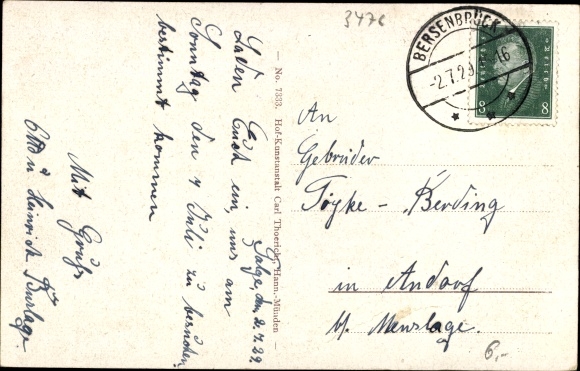 347c
BERSENBRÜCK
-2.7.29
8 8
An
Gebrüder
Töpke - Berding
in Andorf
b. Menslage.
6,-
— No. 7333. Hof-Kunstanstalt Carl Thoericht, Hann.-Münden —
den 2.7.29.
Laden Euch ein, uns am
Sonntag den 7 Juli zu besuchen,
bestimmt kommen
Mit Gruß
Otto u Heinrich Burlage.